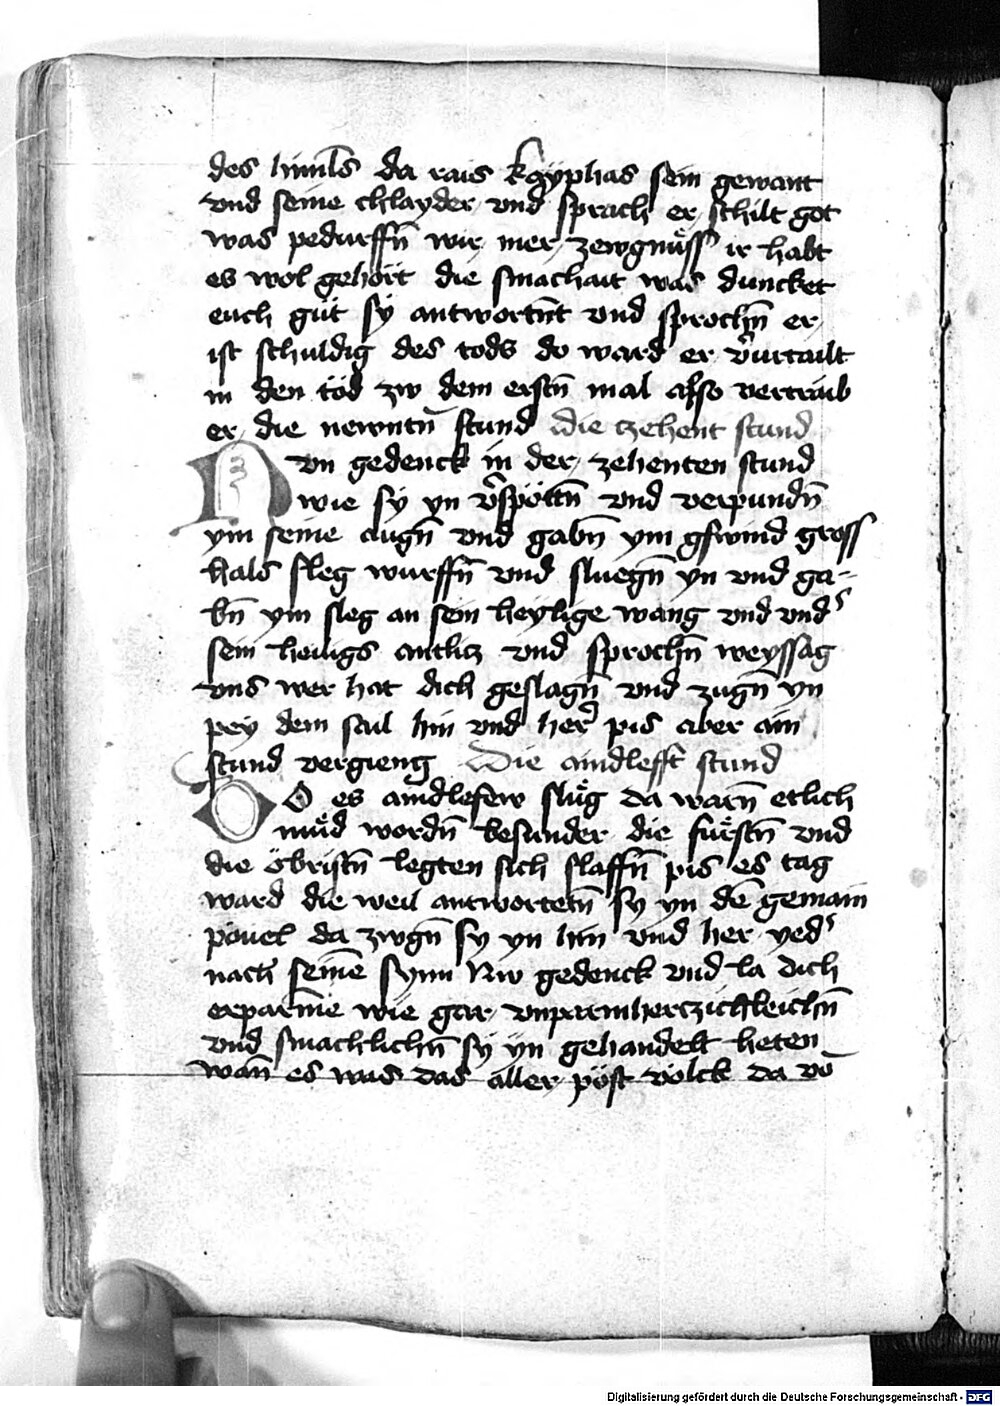 des himels da rais kayphas sein gewant
vnd seine chlayder vnd sprach er schilt got
was pedurffn̄ wir mer zewgnüss ir habt
es wol gehört die smachait was duncket
euch güt sy antwortn̄t vnd sprochn̄ er
ist schuldig des tods do ward er vͤurtailt
in den töd zw dem erstn̄ mal also vertraib
er die newntn̄ stund Die zehent stund
Nvn gedenck in der zehenten stund
wie sy yn vͤspöttn̄ vnd verpundn̄
ym seine augn̄ vnd gabn̄ ym gswind gross
hals sleg wurffn̄ vnd sluegn̄ yn vnd ga-
bn̄ ym sleg an sein heylige wang vnd vnd'
sein heiligs antlicz vnd sprochn̄ weyssag
vns wer hat dich geslagn̄ vnd zugn̄ yn
pey dem sail hin vnd her pis aber ain
stund vergieng Die aindlefft stund
DO es aindlefew slüg da warn̄ etlich
müd wordn̄ besunder die fürstn̄ vnd
die öbristn̄ legten sich slaffn̄ pis es tag
ward die weil antwortetn̄ sy yn dē gemain
pöuel da zwgn̄ sy yn hin vnd her yed'
nach seinē synn Nw gedenck vnd la dich
erparmē wie gar vnparmherczichleichn̄
vnd smachlichn̄ sy yn gehandelt heten
wan̄ es was das aller pöst volck da vō
Digitalisierung gefördert durch die Deutsche Forschungsgemeinschaft - DFG